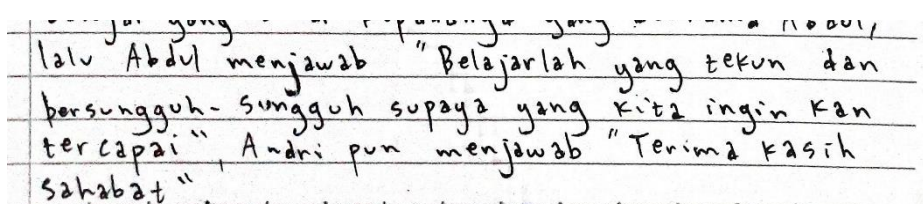 yang yang Abdul,
lalu Abdul menjawab "Belajarlah yang tekun dan
bersungguh-sungguh supaya yang kita ingin kan
tercapai", Andri pun menjawab "Terima kasih
sahabat"